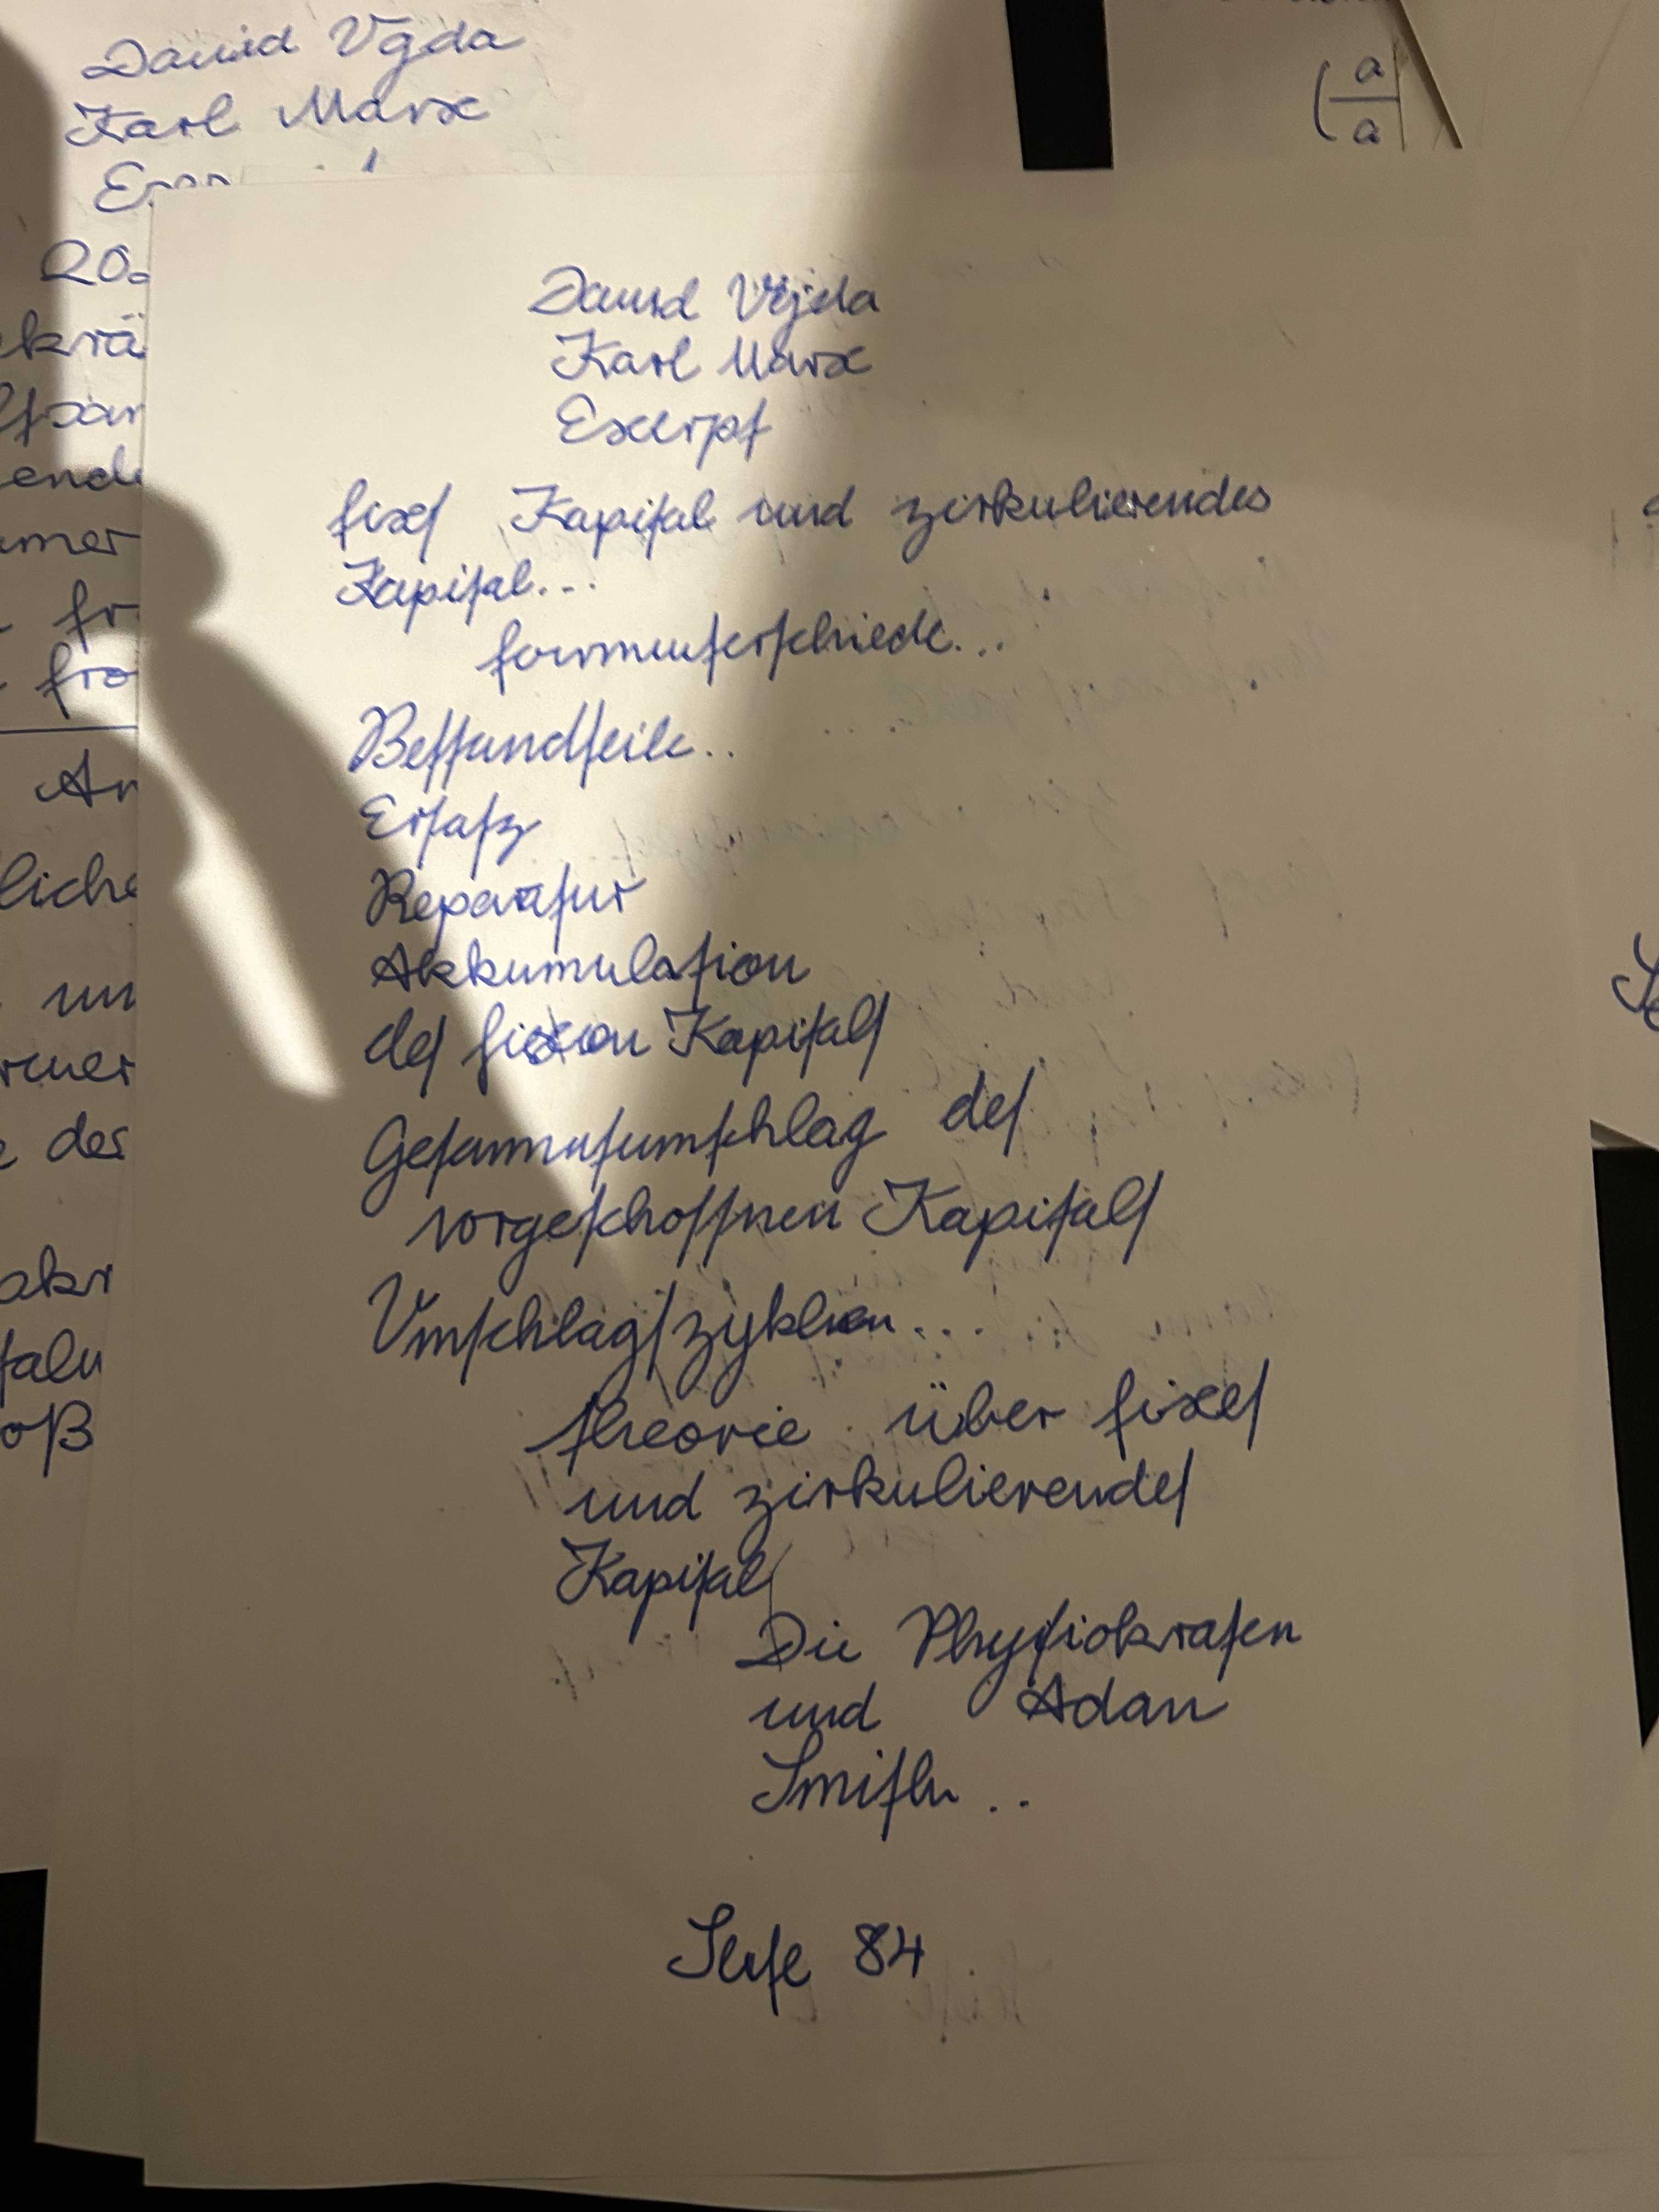 David Vajda
Karl Marx
20
ekrä
ende
amer
fr
fro
An
liche
un
e der
oß
(a
a
David Vajda
Karl Marx
Exerpt
fixes Kapital und zirkulierendes
Kapital...
formunterschiede...
Bestandteile..
Ersatz
Reparatur
Akkumulation
des fixen Kapitals
Gesammtumschlag des
vorgeschossnen Kapitals
Umschlagszyklen...
theorie über fixes
und zirkulierendes
Kapital
Die Physiokraten
und Adam
Smith..
Seite 84